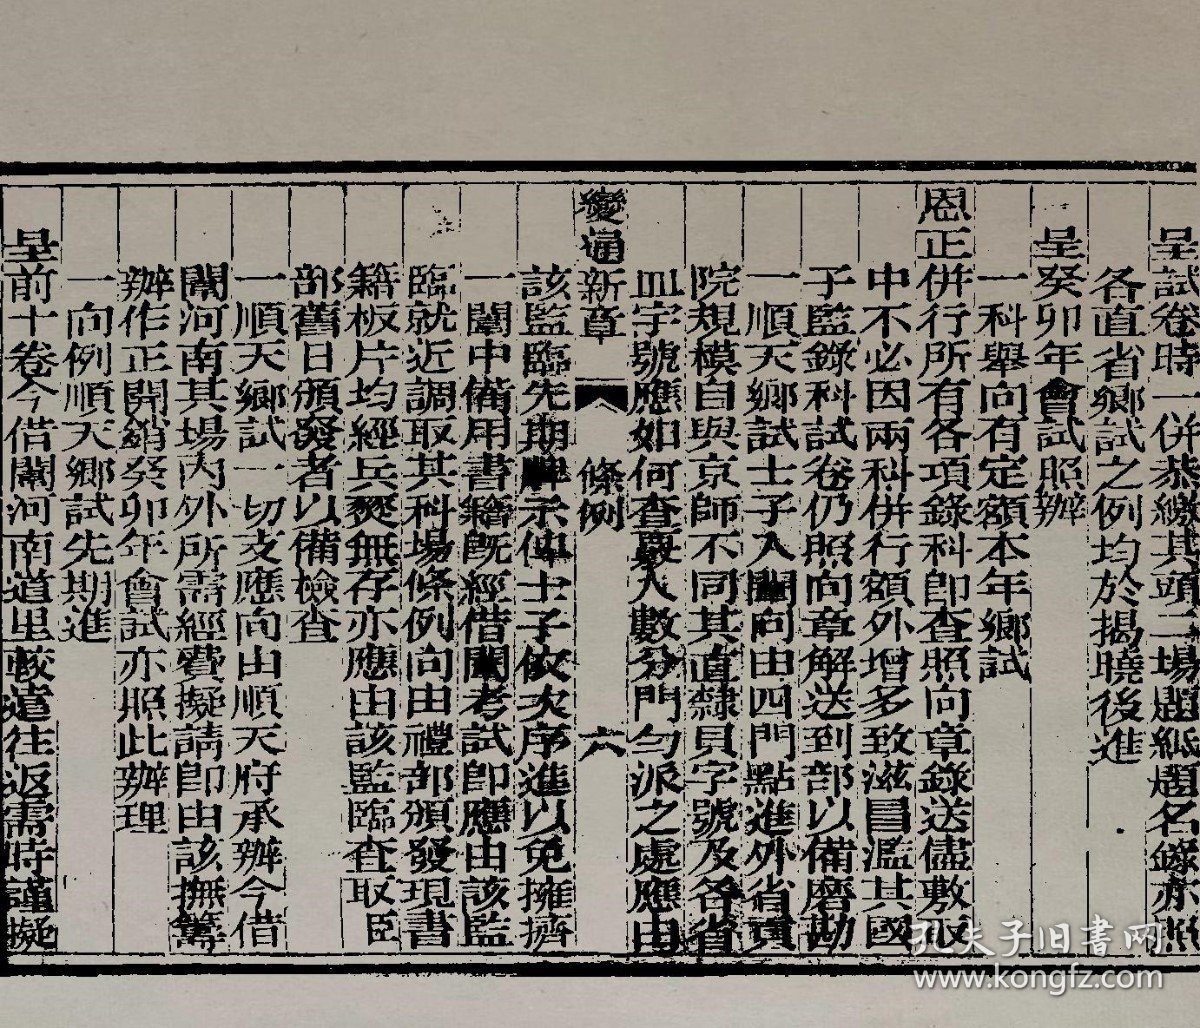 呈試卷時一併恭繳其頭二場題紙題名錄亦照
各直省鄉試之例均於揭曉後進
呈癸卯年會試照辦
一科舉向有定額本年鄉試
恩正併行所有各項錄科卽查照向章錄送儘敷取
中不必因兩科併行額外增多致滋冒濫其國
子監錄科試卷仍照向章解送到部以備磨勘
一順天鄉試士子入闈向由四門點進外省貢
院規模自與京師不同其直隸貝字號及各省
皿字號應如何查覈人數分門勻派之處應由
變通新章 條例 六
該監臨先期牌示俾士子依次序進以免擁擠
一闈中備用書籍旣經借闈考試卽應由該監
臨就近調取其科場條例向由禮部頒發現書
籍板片均經兵燹無存亦應由該監臨查取臣
部舊日頒發者以備檢查
一順天鄉試一切支應向由順天府承辦今借
闈河南其場內外所需經費擬請卽由該撫籌
辦作正開銷癸卯年會試亦照此辦理
一向例順天鄉試先期進
呈前十卷今借闈河南道里較遠往返需時謹擬
孔夫子旧書网
www.kongfz.com